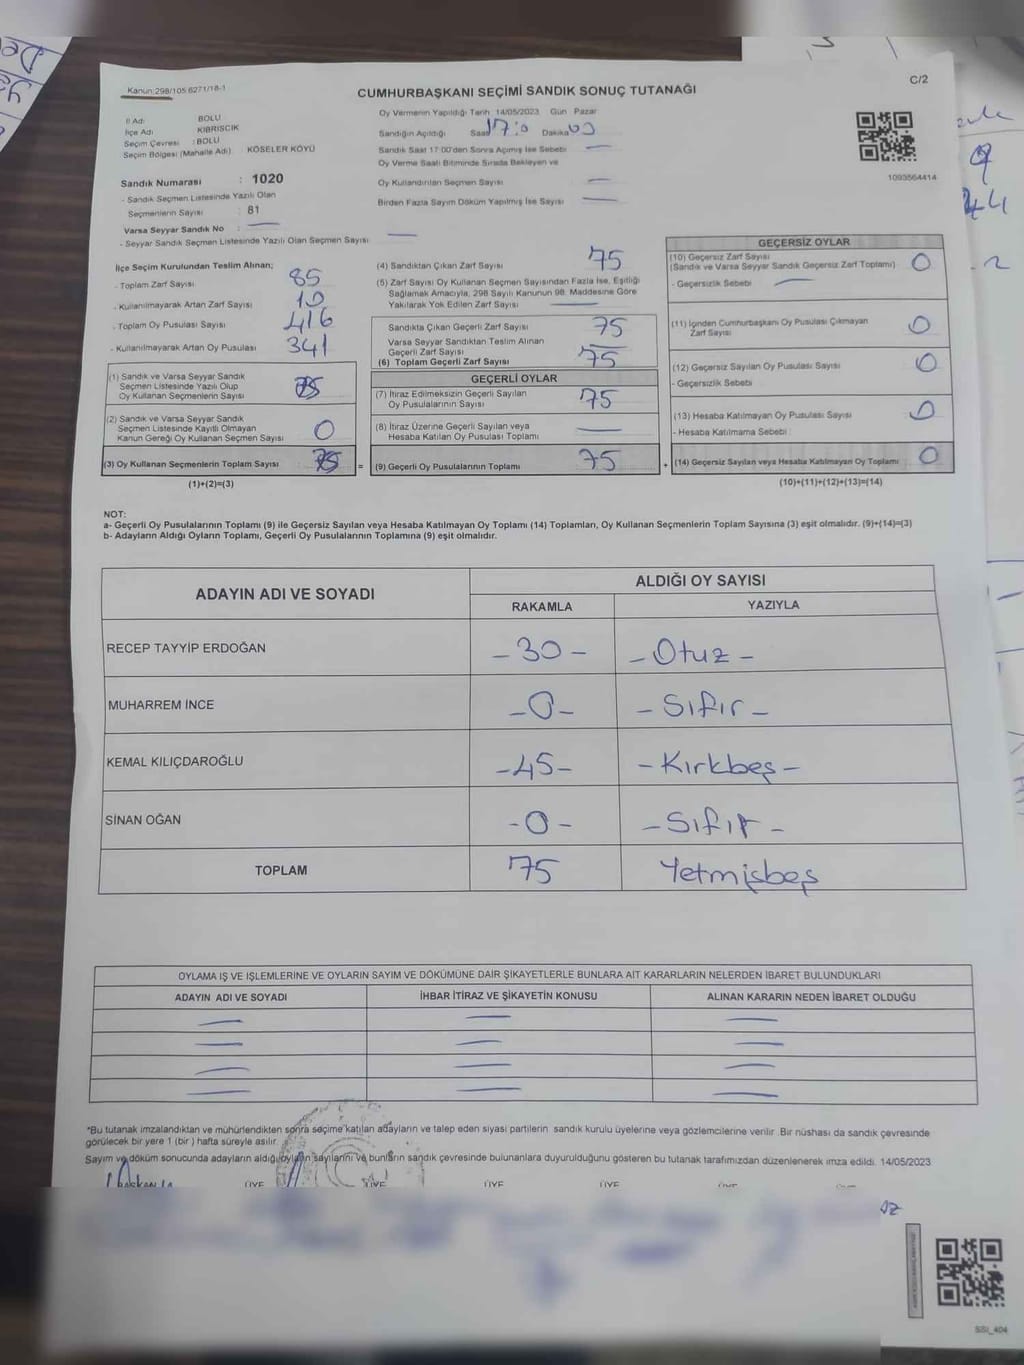 Kanun:298/105 6271/18-1
C/2
CUMHURBAŞKANI SEÇİMİ SANDIK SONUÇ TUTANAĞI
İl Adı BOLU
İlçe Adı KIBRISCIK
Seçim Çevresi : BOLU
Seçim Bölgesi (Mahalle Adı) KÖSELER KÖYÜ
Sandık Numarası : 1020
- Sandık Seçmen Listesinde Yazılı Olan
Seçmenlerin Sayısı : 81
Varsa Seyyar Sandık No
- Seyyar Sandık Seçmen Listesinde Yazılı Olan Seçmen Sayısı
Oy Vermenin Yapıldığı Tarih 14/05/2023 Gün Pazar
Sandığın Açıldığı Saat 17:0 Dakika 00
Sandık Saat 17:00'den Sonra Açımış İse Sebebi
Oy Verme Saati Bitiminde Sırada Bekleyen ve
Oy Kullandırılan Seçmen Sayısı
Birden Fazla Sayım Döküm Yapılmış İse Sayısı
1093564414
İlçe Seçim Kurulundan Teslim Alınan;
- Toplam Zarf Sayısı 85
- Kullanılmayarak Artan Zarf Sayısı 10
- Toplam Oy Pusulası Sayısı 416
- Kullanılmayarak Artan Oy Pusulası 341
(1) Sandık ve Varsa Seyyar Sandık
Seçmen Listesinde Yazılı Olup
Oy Kullanan Seçmenlerin Sayısı 75
(2) Sandık ve Varsa Seyyar Sandık
Seçmen Listesinde Kayıtlı Olmayan
Kanun Gereği Oy Kullanan Seçmen Sayısı 0
(3) Oy Kullanan Seçmenlerin Toplam Sayısı 75 =
(1)+(2)=(3)
(4) Sandıktan Çıkan Zarf Sayısı 75
(5) Zarf Sayısı Oy Kullanan Seçmen Sayısından Fazla İse, Eşitliği
Sağlamak Amacıyla, 298 Sayılı Kanunun 98. Maddesine Göre
Yakılarak Yok Edilen Zarf Sayısı
Sandıkta Çıkan Geçerli Zarf Sayısı 75
Varsa Seyyar Sandıktan Teslim Alınan
Geçerli Zarf Sayısı
(6) Toplam Geçerli Zarf Sayısı 75
GEÇERLİ OYLAR
(7) İtiraz Edilmeksizin Geçerli Sayılan
Oy Pusulalarının Sayısı 75
(8) İtiraz Üzerine Geçerli Sayılan veya
Hesaba Katılan Oy Pusulası Toplamı
(9) Geçerli Oy Pusulalarının Toplamı 75 +
GEÇERSİZ OYLAR
(10) Geçersiz Zarf Sayısı
(Sandık ve Varsa Seyyar Sandık Geçersiz Zarf Toplamı) 0
- Geçersizlik Sebebi
(11) İçinden Cumhurbaşkanı Oy Pusulası Çıkmayan
Zarf Sayısı 0
(12) Geçersiz Sayılan Oy Pusulası Sayısı 0
- Geçersizlik Sebebi
(13) Hesaba Katılmayan Oy Pusulası Sayısı 0
- Hesaba Katılmama Sebebi :
(14) Geçersiz Sayılan veya Hesaba Katılmayan Oy Toplamı 0
(10)+(11)+(12)+(13)=(14)
NOT:
a- Geçerli Oy Pusulalarının Toplamı (9) ile Geçersiz Sayılan veya Hesaba Katılmayan Oy Toplamı (14) Toplamları, Oy Kullanan Seçmenlerin Toplam Sayısına (3) eşit olmalıdır. (9)+(14)=(3)
b- Adayların Aldığı Oyların Toplamı, Geçerli Oy Pusulalarının Toplamına (9) eşit olmalıdır.
ADAYIN ADI VE SOYADI ALDIĞI OY SAYISI
RAKAMLA YAZIYLA
RECEP TAYYİP ERDOĞAN -30- -Otuz-
MUHARREM İNCE -0- -Sıfır-
KEMAL KILIÇDAROĞLU -45- -Kırkbeş-
SİNAN OĞAN -0- -Sıfır-
TOPLAM 75 Yetmişbeş
OYLAMA İŞ VE İŞLEMLERİNE VE OYLARIN SAYIM VE DÖKÜMÜNE DAİR ŞİKAYETLERLE BUNLARA AİT KARARLARIN NELERDEN İBARET BULUNDUKLARI
ADAYIN ADI VE SOYADI İHBAR İTİRAZ VE ŞİKAYETİN KONUSU ALINAN KARARIN NEDEN İBARET OLDUĞU
*Bu tutanak imzalandıktan ve mühürlendikten sonra seçime katılan adayların ve talep eden siyasi partilerin sandık kurulu üyelerine veya gözlemcilerine verilir .Bir nüshası da sandık çevresinde
görülecek bir yere 1 (bir ) hafta süreyle asılır.
Sayım ve döküm sonucunda adayların aldığı oyların sayılarını ve bunların sandık çevresinde bulunanlara duyurulduğunu gösteren bu tutanak tarafımızdan düzenlenerek imza edildi. 14/05/2023
BAŞKAN ÜYE ÜYE ÜYE ÜYE
SSI_404